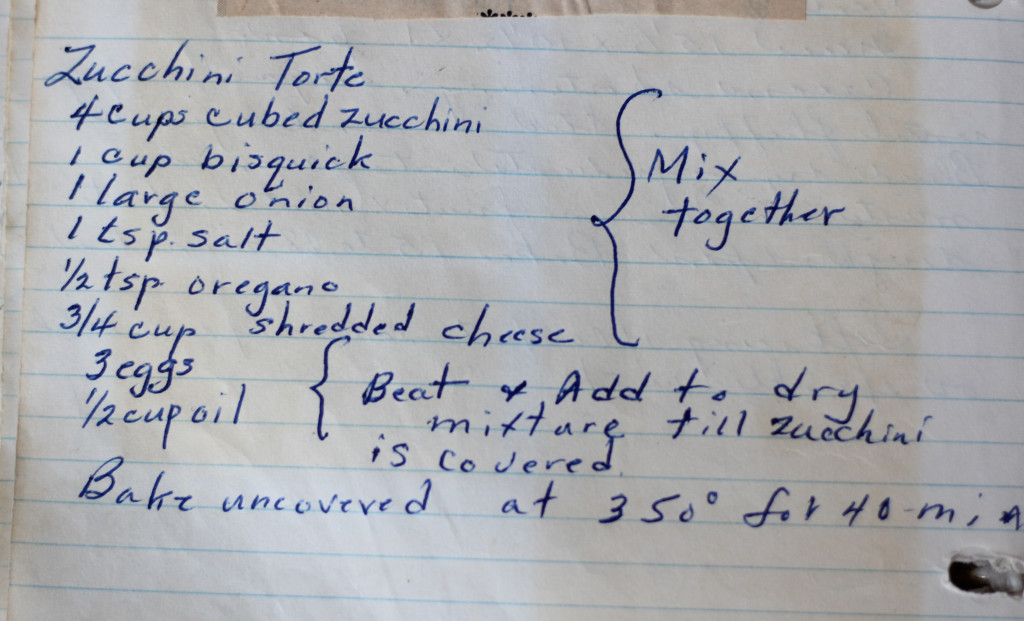 Zucchini Torte
4 cups cubed zucchini
1 cup bisquick
1 large onion
1 tsp. salt
1/2 tsp. oregano
3/4 cup shredded cheese
Mix
together
3 eggs
1/2 cup oil
Beat & Add to dry
mixture till zucchini
is covered.
Bake uncovered at 350° for 40 min